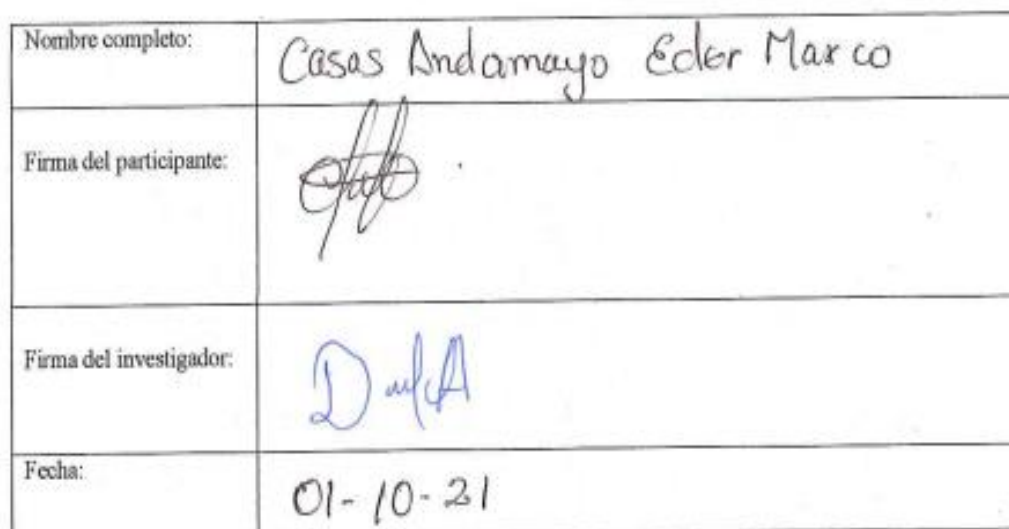 Nombre completo:
Casas Andamayo Eder Marco
Firma del participante:
Firma del investigador:
Fecha:
01-10-21